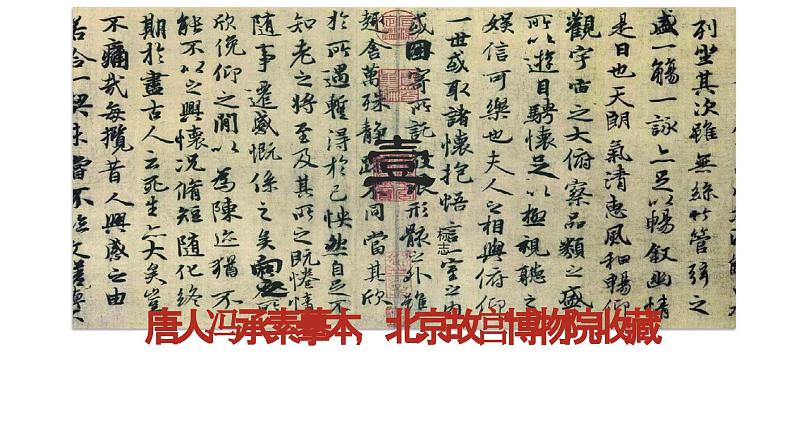 列坐其次雖無絲竹管弦之
盛一觴一詠亦足以暢敘幽情
是日也天朗氣清惠風和暢仰
觀宇宙之大俯察品類之盛
所以遊目騁懷足以極視聽之
娛信可樂也夫人之相與俯仰
一世或取諸懷抱悟言一室之內
或因寄所託放浪形骸之外雖
趣舍萬殊靜躁不同當其欣
於所遇暫得於己怏然自足不
知老之將至及其所之既惓情
隨事遷感慨係之矣向之所
欣俛仰之間以為陳迹猶不
能不以之興懷況脩短隨化終
期於盡古人云死生亦大矣豈
不痛哉每攬昔人興感之由
若合一契未嘗不臨文嗟悼
壹
标志
唐人冯承素摹本，北京故宫博物院收藏